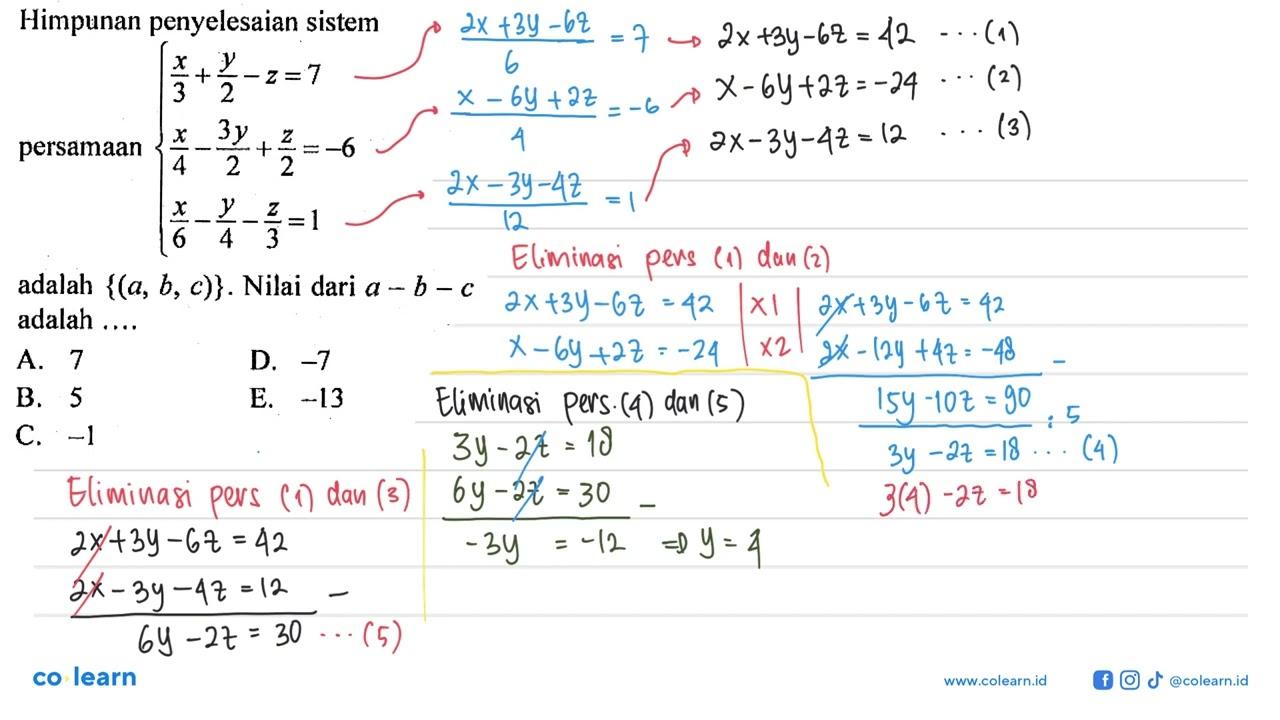 Himpunan penyelesaian sistem
persamaan
x/3 + y/2 - z = 7
x/4 - 3y/2 + z/2 = -6
x/6 - y/4 - z/3 = 1
adalah {(a, b, c)}. Nilai dari a - b - c
adalah ....
A. 7
B. 5
C. -1
D. -7
E. -13
(2x + 3y - 6z)/6 = 7 → 2x + 3y - 6z = 42 ... (1)
(x - 6y + 2z)/4 = -6 → x - 6y + 2z = -24 ... (2)
(2x - 3y - 4z)/12 = 1 → 2x - 3y - 4z = 12 ... (3)
Eliminasi pers (1) dan (2)
2x + 3y - 6z = 42 | x1 | 2x + 3y - 6z = 42
x - 6y + 2z = -24 | x2 | 2x - 12y + 4z = -48 -
15y - 10z = 90 : 5
3y - 2z = 18 ... (4)
3(4) - 2z = 18
Eliminasi pers (1) dan (3)
2x + 3y - 6z = 42
2x - 3y - 4z = 12 -
6y - 2z = 30 ... (5)
Eliminasi pers. (4) dan (5)
3y - 2z = 18
6y - 2z = 30 -
-3y = -12 ⇒ y = 4
co learn
www.colearn.id
@colearn.id